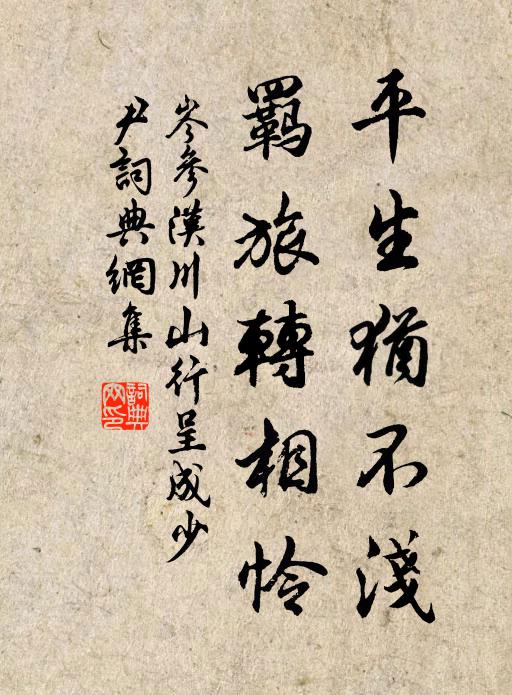 平生猶不淺
羈旅轉相怜
岑參漢川山行呈成少
尹詞典網集
詞典網印